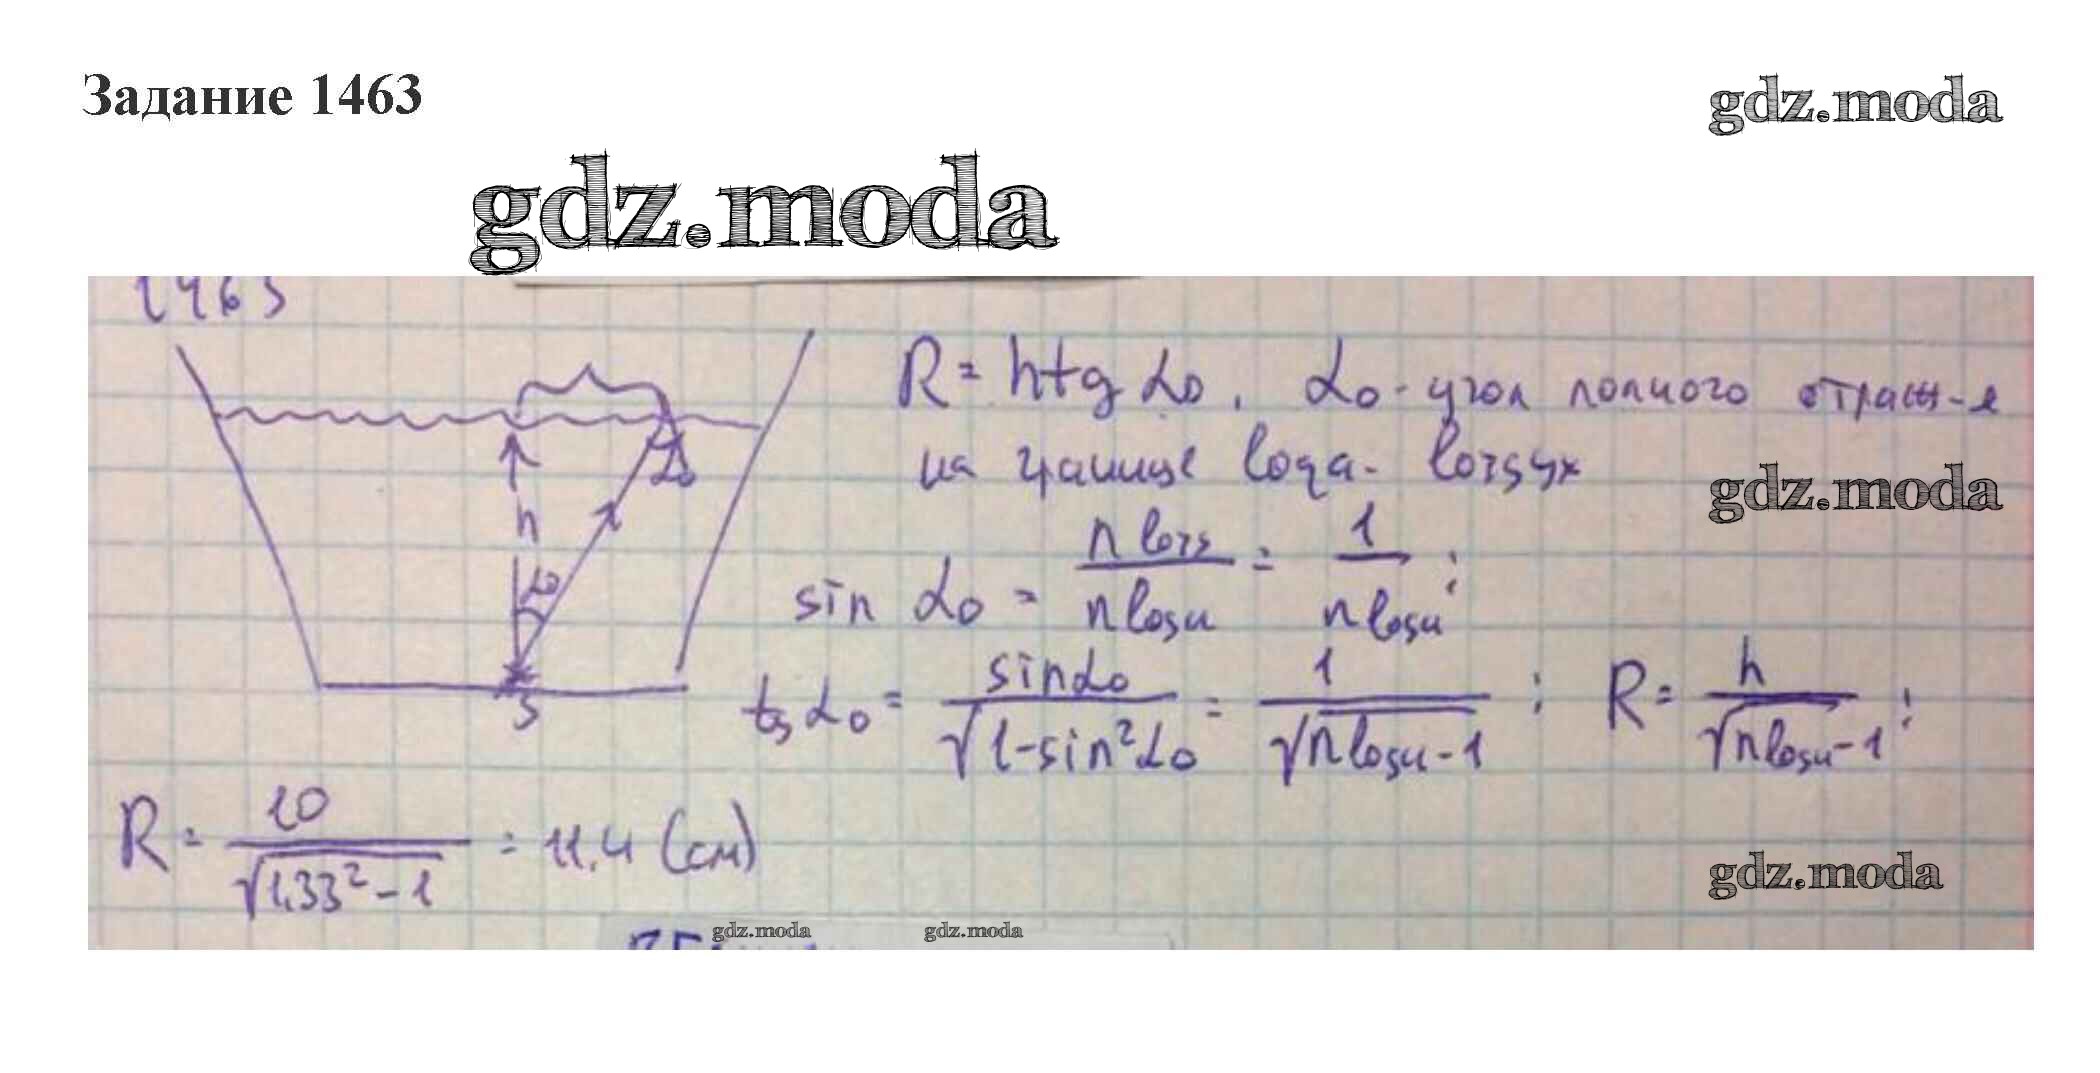 Задание 1463
gdz.moda
gdz.moda
1463
R = h tg α₀, α₀ - угол полного отраж-я
на границе вода - воздух
gdz.moda
sin α₀ = n возд / n воды = 1 / n воды ;
h
α₀
α₀
S
tg α₀ = sin α₀ / √(1 - sin² α₀) = 1 / √(n воды - 1) ; R = h / √(n воды - 1) ;
R = 10 / √(1,33² - 1) = 11,4 (см)
gdz.moda
gdz.moda gdz.moda